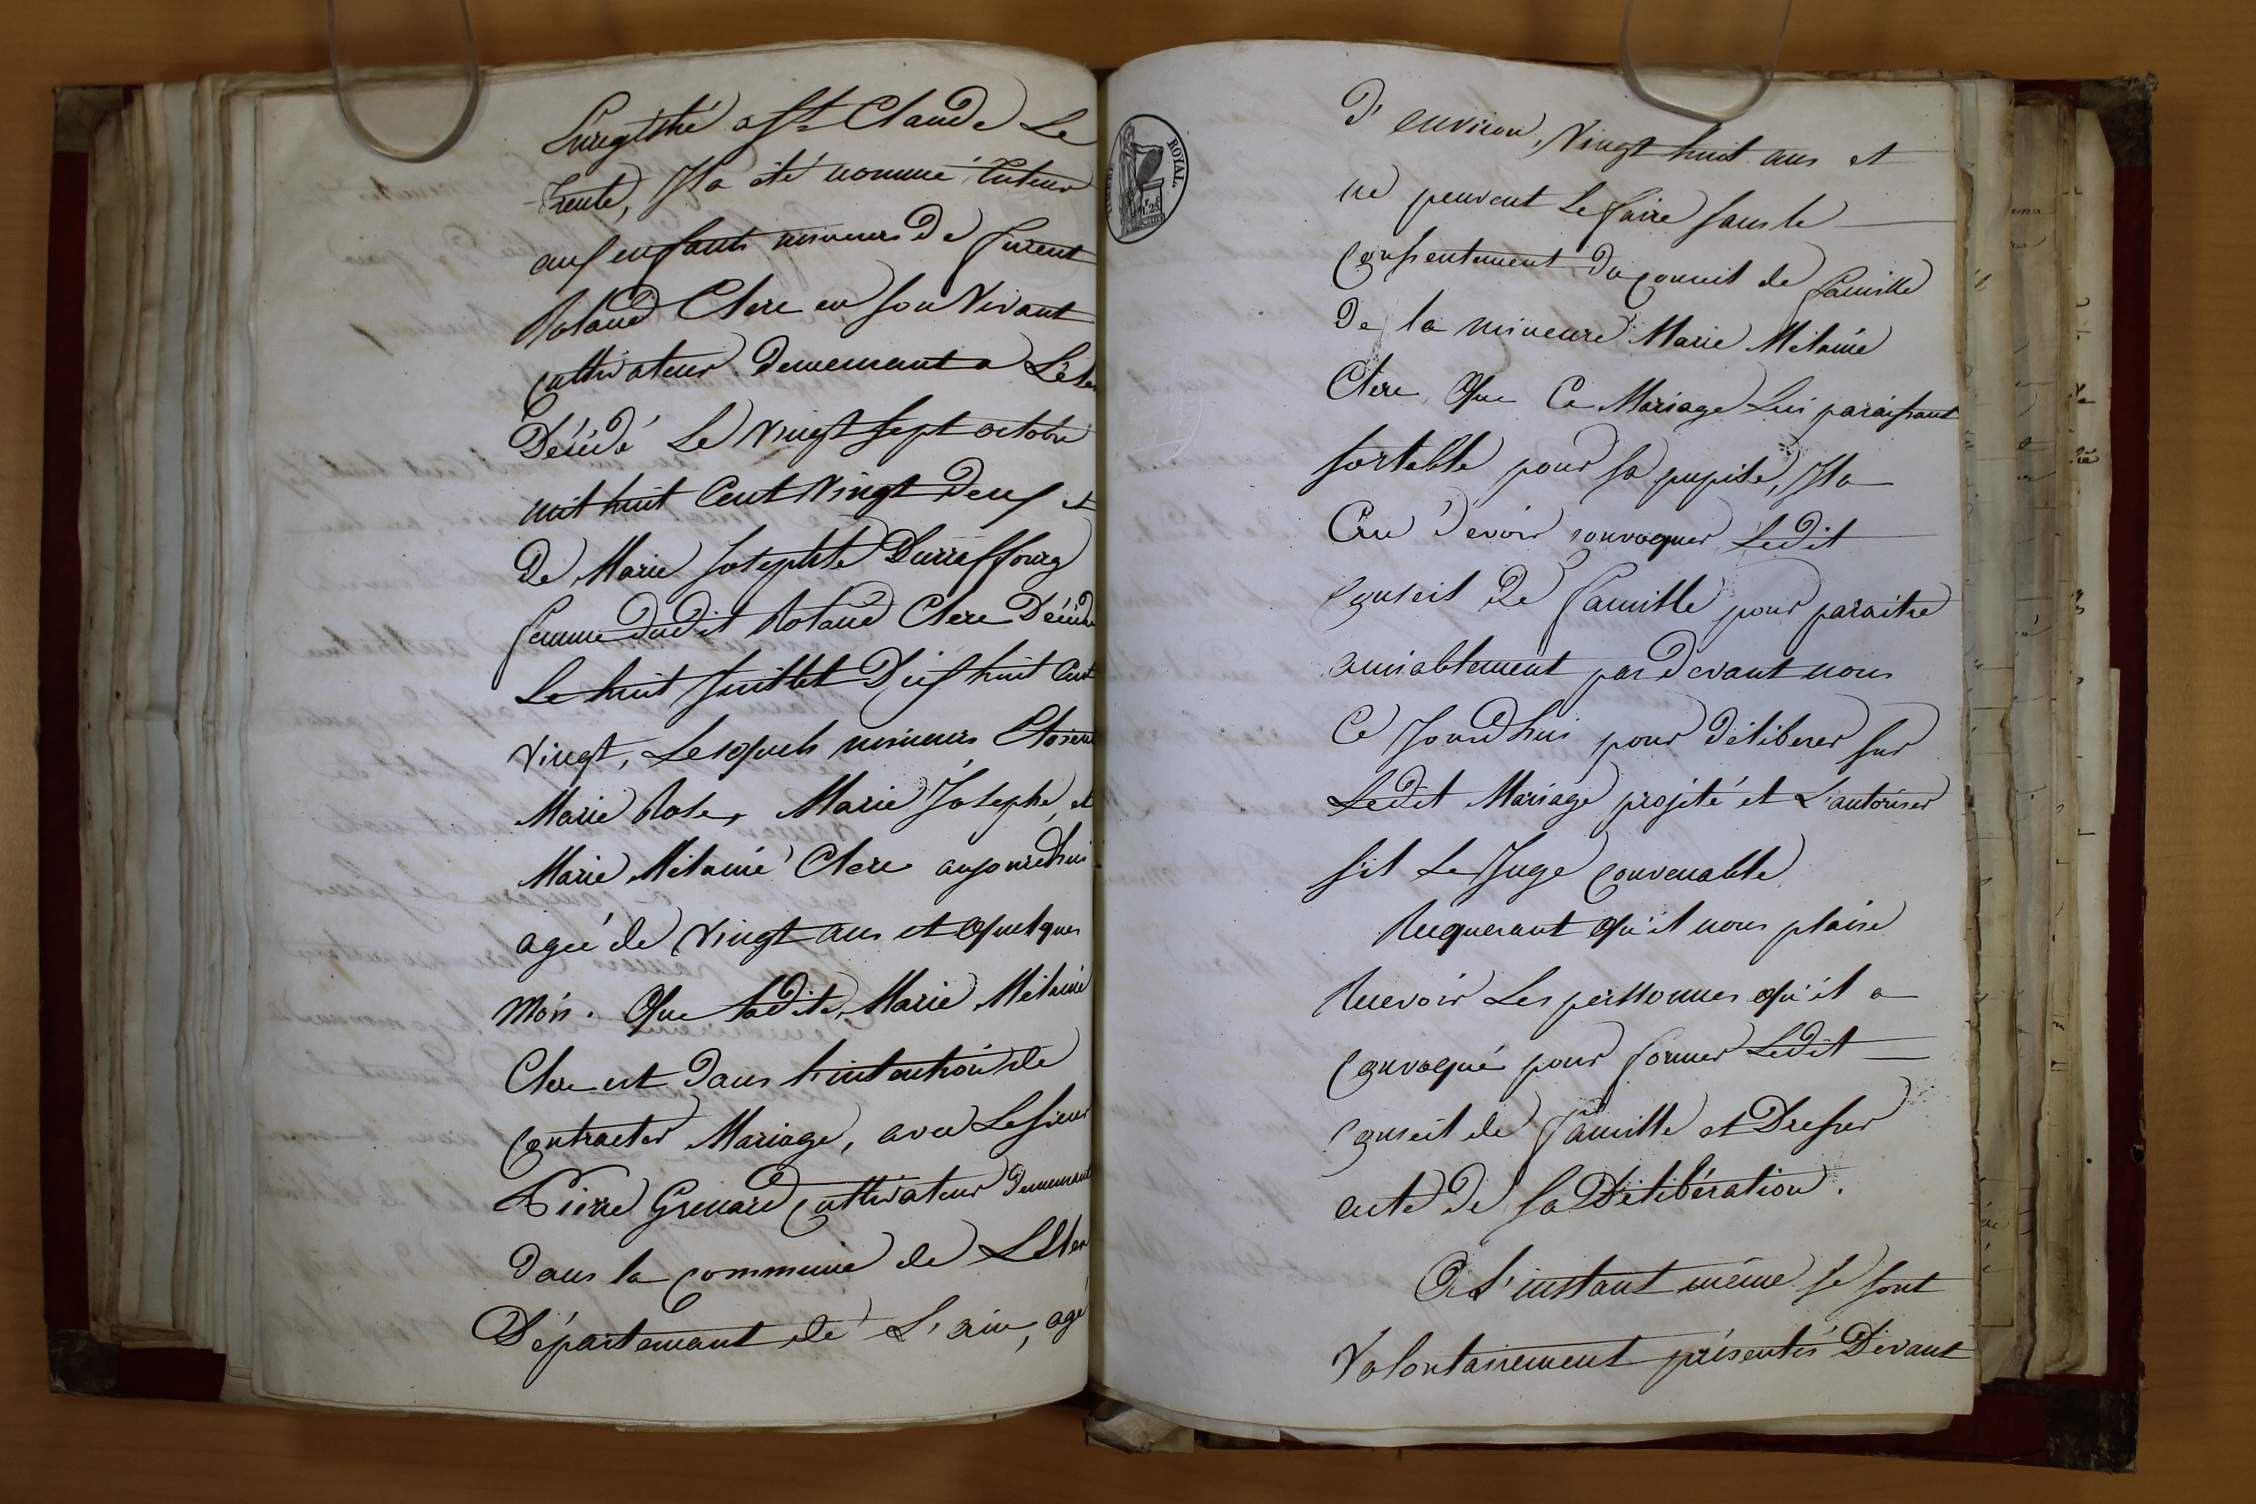 Enregistré a St Claude Le
trente, Il a été nommé tuteur
aux enfants mineurs de furent
Roland Clerc en son Vivant
cultivateur demeurant a
Décédé Le Vingt sept octobre
mil huit Cent Vingt deux et
De Marie Josephte Durraffourg
femme dudit Roland Clerc Décédé
Le huit Juillet Dix huit Cent
Vingt, Lesquels mineurs Etoient
Marie Rose, Marie Josephe, et
Marie Mélanie Clerc aujourdhui
agée de Vingt ans et quelques
Mois. Que ladite Marie Mélanie
Clerc est dans l'intention de
contracter Mariage, avec Le sieur
Pierre Grenard cultivateur demeurant
dans la commune de
Département de L'ain, agé
D'environ Vingt huit ans et
ne peuvent Le faire sans le
consentement du conseil de famille
De la mineure Marie Mélanie
Clerc, Que Ce Mariage Lui paraissant
sortable pour sa pupile, Il a
Cru devoir convoquer Ledit
conseil De famille pour paraitre
amiablement par devant nous
Ce Jourdhui pour déliberer sur
Ledit Mariage projeté et L'autoriser
s'il Le Juge convenable
Requerant qu'il nous plaise
Recevoir Les personnes qu'il a
convoqué pour former Ledit
conseil de famille et Dresser
acte De sa Délibération.
A L'instant même se sont
Volontairement présentés Devant
ROYAL